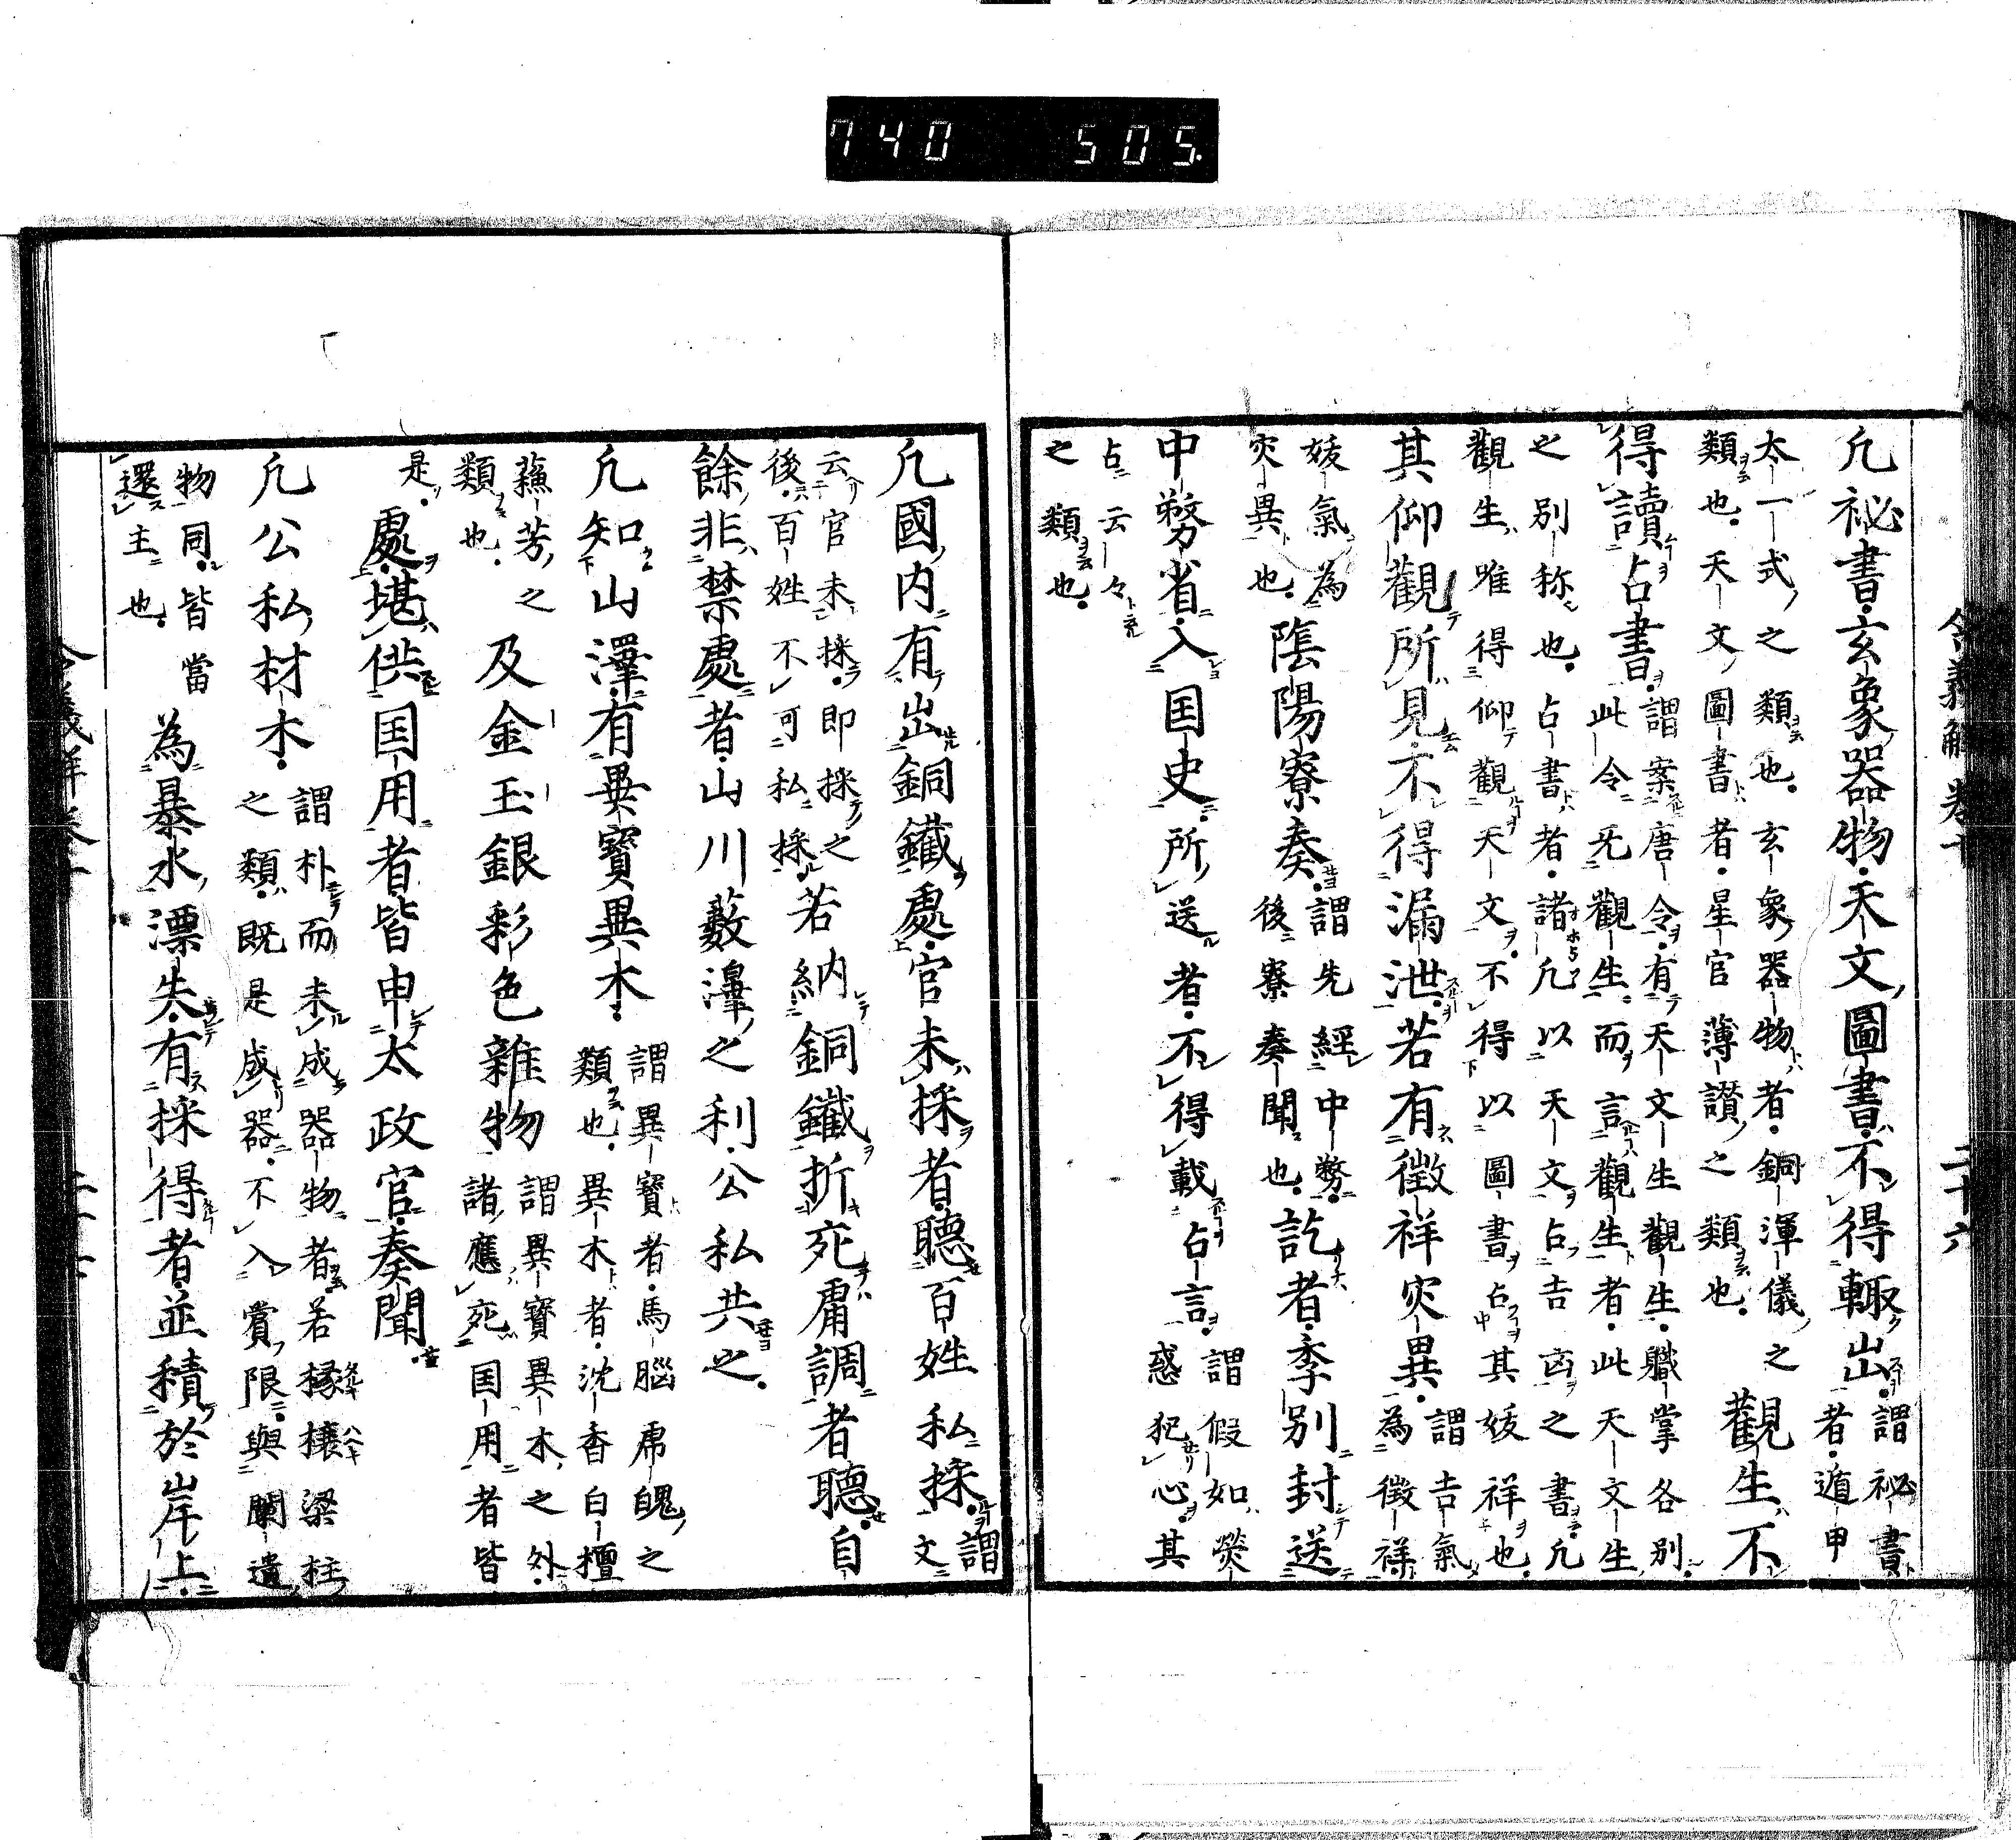 740 505.
令義解卷十 二十六
凡祕書玄象器物天文圖書不得輙出謂祕書者遁甲
太一式之類也玄象器物者銅渾儀之類也天文圖書者星官薄讃之類也觀生不
得讀占書謂案唐令有天文生觀生職掌各別此令旡觀生而言觀生者此天文生
之別称也占書者諸凡以天文占吉凶之書凡
觀生唯得仰觀天文不得以圖書占其妖祥也
其仰觀所見不得漏泄若有徵祥灾異謂吉氣為徵祥
妖氣為灾異也陰陽寮奏謂先經中務後寮奏聞也訖者季別封送
中務省入国史所送者不得載占言謂假如熒惑犯心其
占云云々之類也
凡國内有出銅鐵處官未採者聽百姓私採謂文
云官未採即採之後百姓不可私採若納銅鐵折充庸調者聽自
餘非禁處者山川藪澤之利公私共之
凡知山澤有異寶異木謂異寶者馬腦虎魄之類也異木者沈香白檀
蘓芳之類也及金玉銀彩色雜物謂異寶異木之外諸應充国用者皆
是處堪供国用者皆申太政官奏聞
凡公私材木謂朴而未成器物者若椽欀梁柱之類既是成器不入賞限與闌遺
物同皆當還主也為暴水漂失有採得者並積於岸上